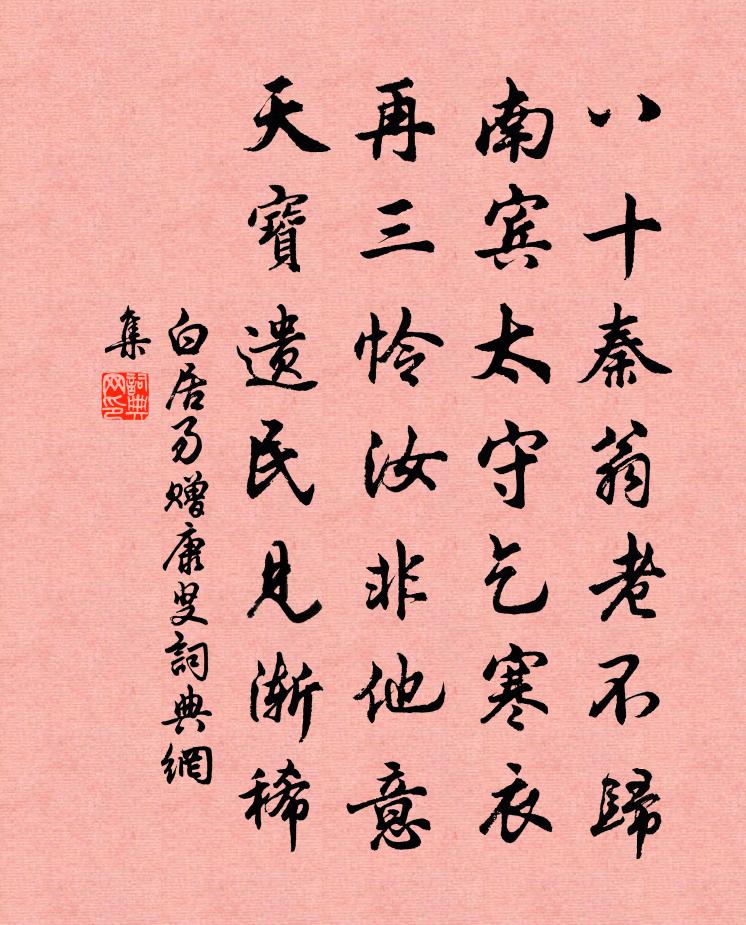 八十秦翁老不歸
南宾太守乞寒衣
再三怜汝非他意
天寶遗民見渐稀
白居易赠康叟詞典網
集
詞典
网印